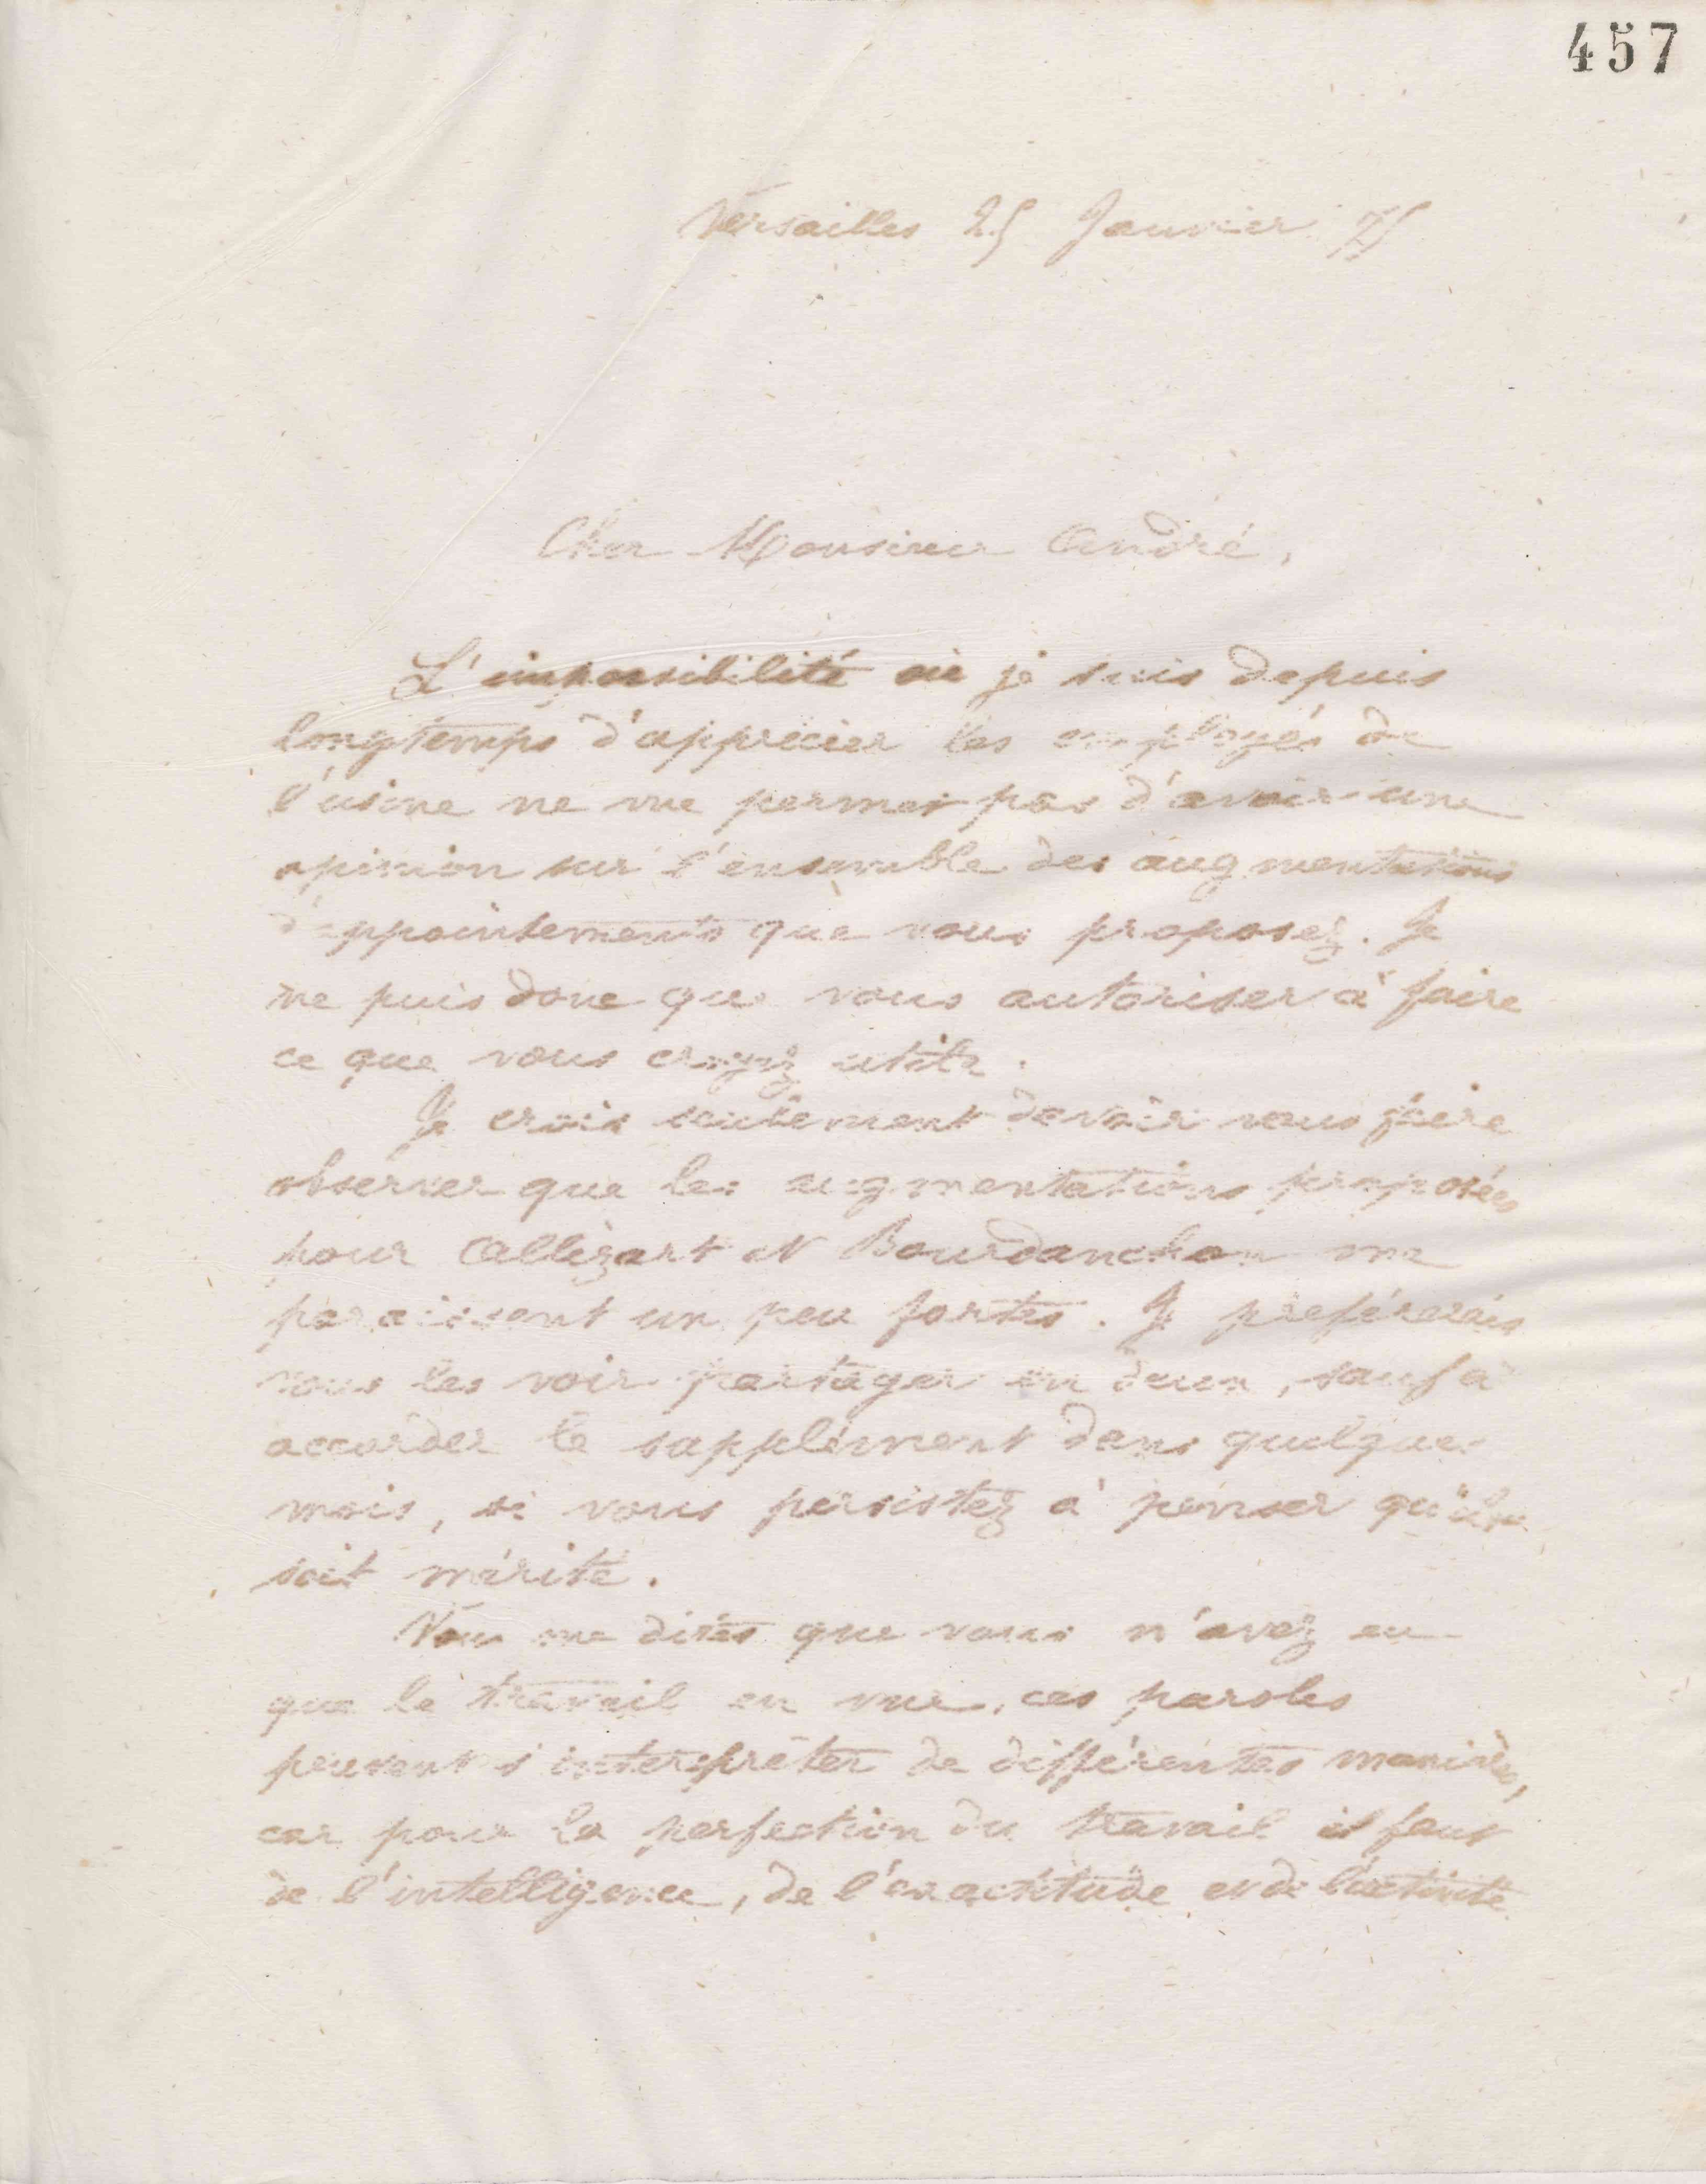 457
Versailles 25 Janvier 75
Cher Monsieur André,
L'impossibilité où je suis depuis
longtemps d'apprécier les employés de
l'usine ne me permet pas d'avoir une
opinion sur l'ensemble des augmentations
d'appointements que vous proposez. Je
ne puis donc que vous autoriser à faire
ce que vous croyez utile.
Je crois seulement devoir vous faire
observer que les augmentations proposées
pour Allizart et Bourdanchon me
paraissent un peu fortes. Je préférerais
vous les voir partager en deux, sauf à
accorder le supplément dans quelques
mois, si vous persistez à penser qu'il
soit mérité.
Vous me dites que vous n'avez eu
que le travail en vue, ces paroles
peuvent s'interpréter de différentes manières,
car pour la perfection du travail il faut
de l'intelligence, de l'exactitude et de l'activité